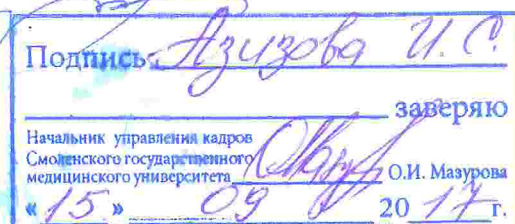 Подпись: Азизова И. С.
заверяю
Начальник управления кадров
Смоленского государственного
медицинского университета О.И. Мазурова
« 15 » 09 20 17 г.